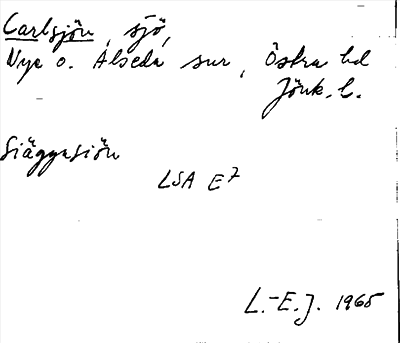 Carlsjön, sjö,
Nye o. Alseda sur, Östra hd
Jönk. l.
Siäggasiön
LSA E7
L.-E. J. 1965